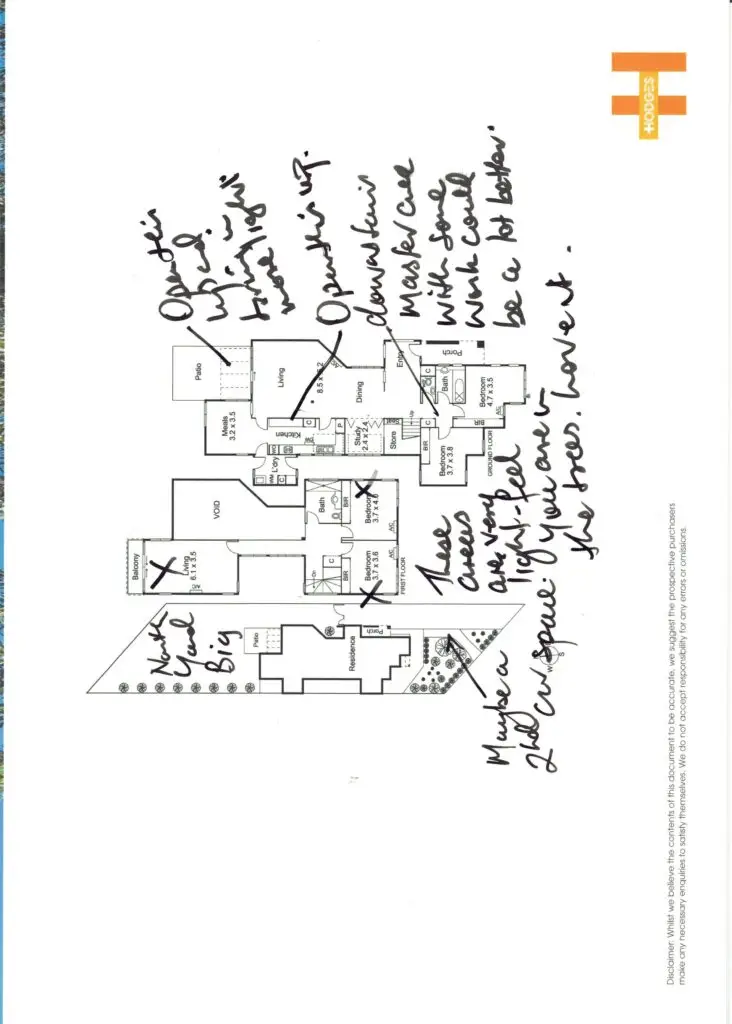 HODGES
Open this
up and
bring in
more light
Open this up.
downstairs
Master area
with some
work could
be a lot better.
Patio
Living
8.5 x 5.2
Dining
Entry
Porch
Meals
3.2 x 3.5
Kitchen
C
P
DW
L'dry
WM
C
Study
2.4 x 2.4
Store
Up
C
C
Bath
BIR
BIR
Bedroom
4.7 x 3.5
A/C
Bedroom
3.7 x 3.8
GROUND FLOOR
Balcony
VOID
Living
6.1 x 3.5
A/C
Bath
BIR
Bedroom
3.7 x 4.6
A/C
C
Dn
BIR
Bedroom
3.7 x 3.6
A/C
FIRST FLOOR
These
areas
are very
light - feel
you are in
the trees. Love it.
North
Yard
Big
Patio
Residence
Porch
W
S
Maybe a
2nd car space.
Disclaimer: Whilst we believe the contents of this document to be accurate, we suggest the prospective purchasers
make any necessary enquiries to satisfy themselves. We do not accept responsibility for any errors or omissions.